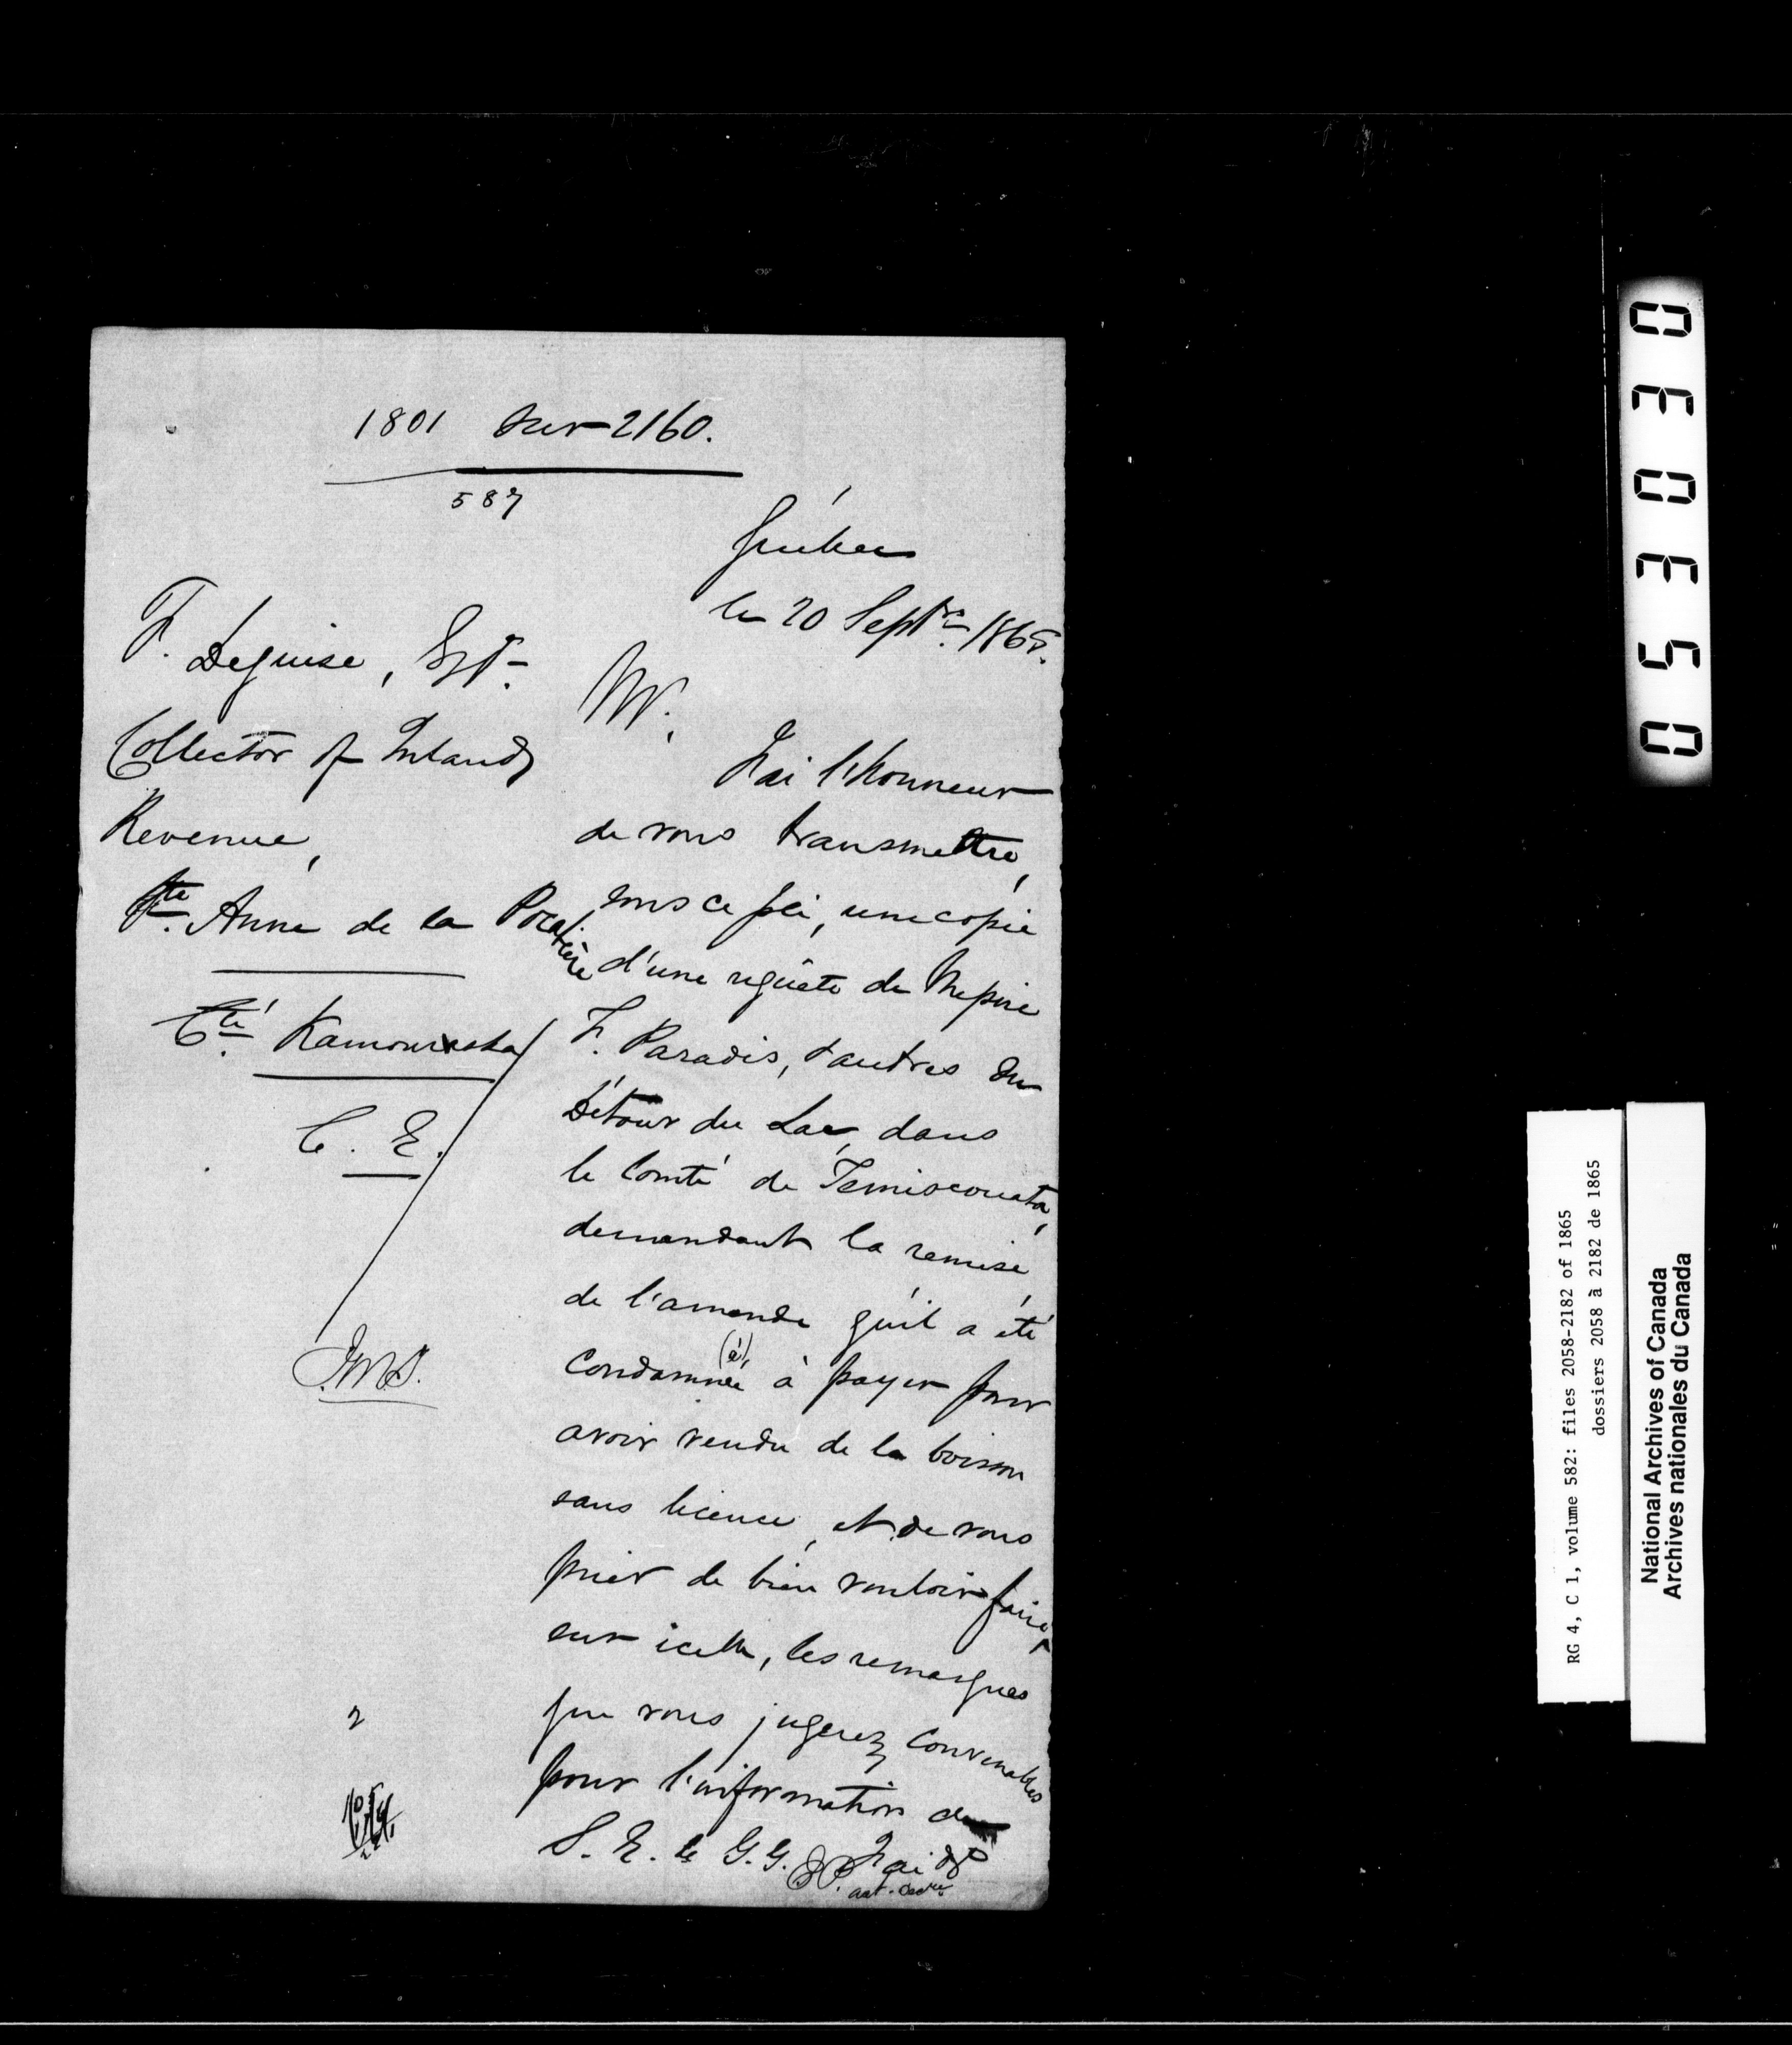 1801 sur 2160.
587
Québec
le 20 Septre. 1865.
F. Deguise, Esqr.
Collector of Inland
Revenue,
Ste. Anne de la Pocatière
Cté. Kamouraska
C. E.
M.,
J'ai l'honneur
de vous transmettre,
sous ce pli, une copie
d'une requête de
F. Paradis, & autres du
Détour du Lac, dans
le Comté de Temiscouata,
demandant la remise
de l'amende qu'il a été
condamnée (é) à payer pour
avoir vendu de la boisson
sans licence, et de vous
prier de bien vouloir faire,
sur icelle, les remarques
que vous jugerez convenables
pour l'information de
S. E. le G. G. J'ai &
asst. Secre.
2
0E0E50
RG 4, C 1, volume 582: files 2058-2182 of 1865
dossiers 2058 à 2182 de 1865
National Archives of Canada
Archives nationales du Canada